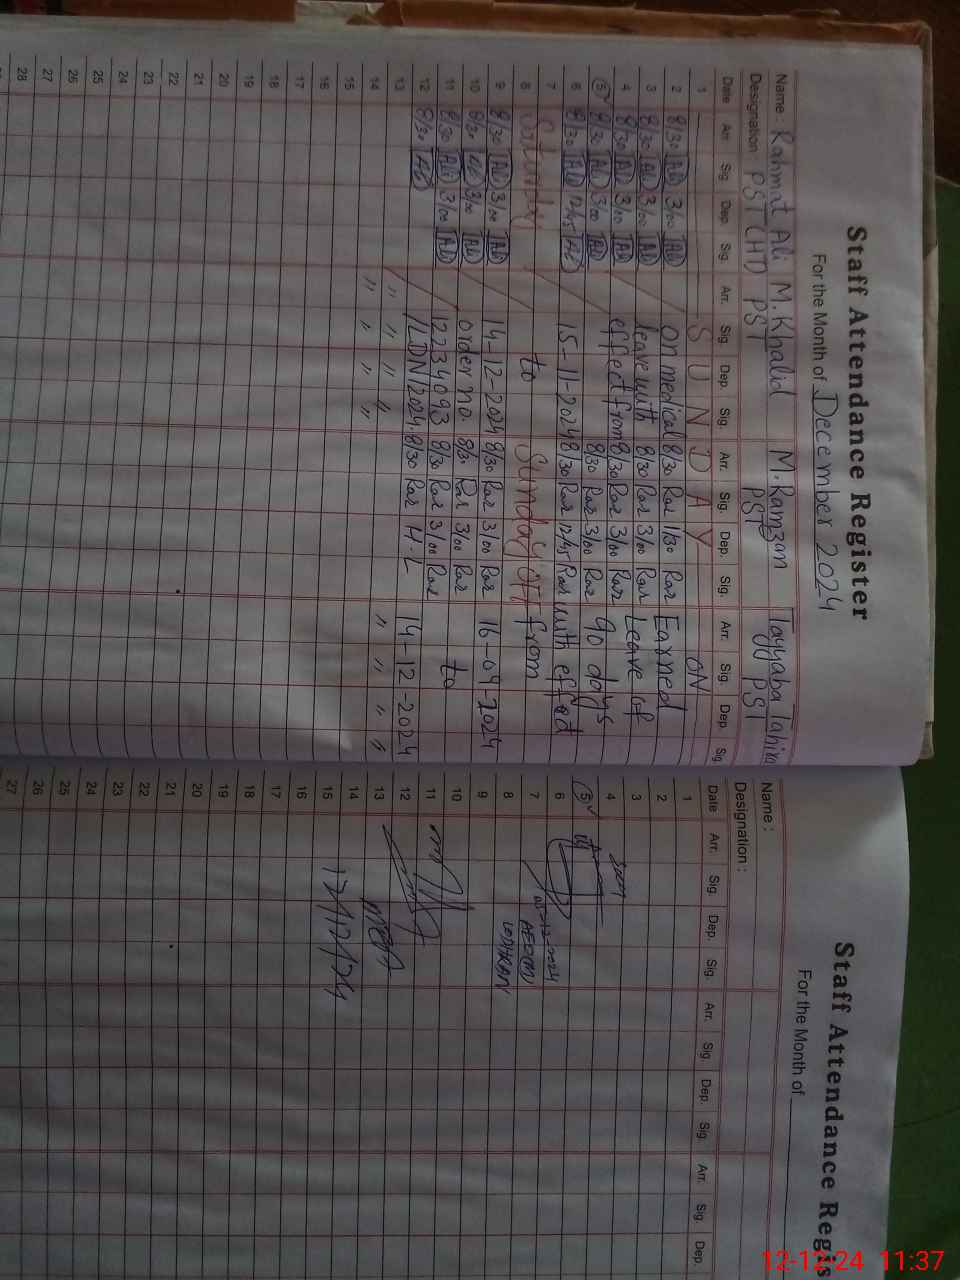 Staff Attendance Register
For the Month of December 2024
Name : Rahmat Ali M. Khalid M. Ramzan Tayyaba Tahira
Designation : PST (HT) PST PST PST
Date Arr. Sig. Dep. Sig. Arr. Sig. Dep. Sig. Arr. Sig. Dep. Sig. Arr. Sig. Dep. Sig.
1 S U N D A Y ON
2 8/30 Ali 3/00 Ali On medical 8/30 Raz 1/30 Raz Earned
3 8/30 Ali 3/00 Ali leave with 8/30 Raz 3/00 Raz Leave of
4 8/30 Ali 3/00 Ali effect from 8/30 Raz 3/00 Raz
5 8/30 Ali 3/00 Ali 8/30 Raz 3/00 Raz 90 days
6 8/30 Ali 12/45 Ali 15-11-2024 8/30 Raz 12/45 Raz with effect
7
8 to Sunday Off from
9 8/30 Ali 3/00 Ali 14-12-2024 8/30 Raz 3/00 Raz 16-09-2024
10 8/30 Ali 3/00 Ali order no. 8/30 Raz 3/00 Raz
11 8/30 Ali 3/00 Ali 12234093 8/30 Raz 3/00 Raz to
12 8/30 Ali /LDN/2024. 8/30 Raz H.L 14-12-2024
13 " " " " " " "
14 " " " "
15
16
17
18
19
20
21
22
23
24
25
26
27
28
Staff Attendance Regis
For the Month of
Name :
Designation :
Date Arr. Sig. Dep. Sig. Arr. Sig. Dep. Sig. Arr. Sig. Dep.
1
2
3
4
5
6
7
8
9
10
11
12
13
14
15
16
17
18
19
20
21
22
23
24
25
26
27
-12-2024
LODHRAN
12/12/24
12-12-24 11:37